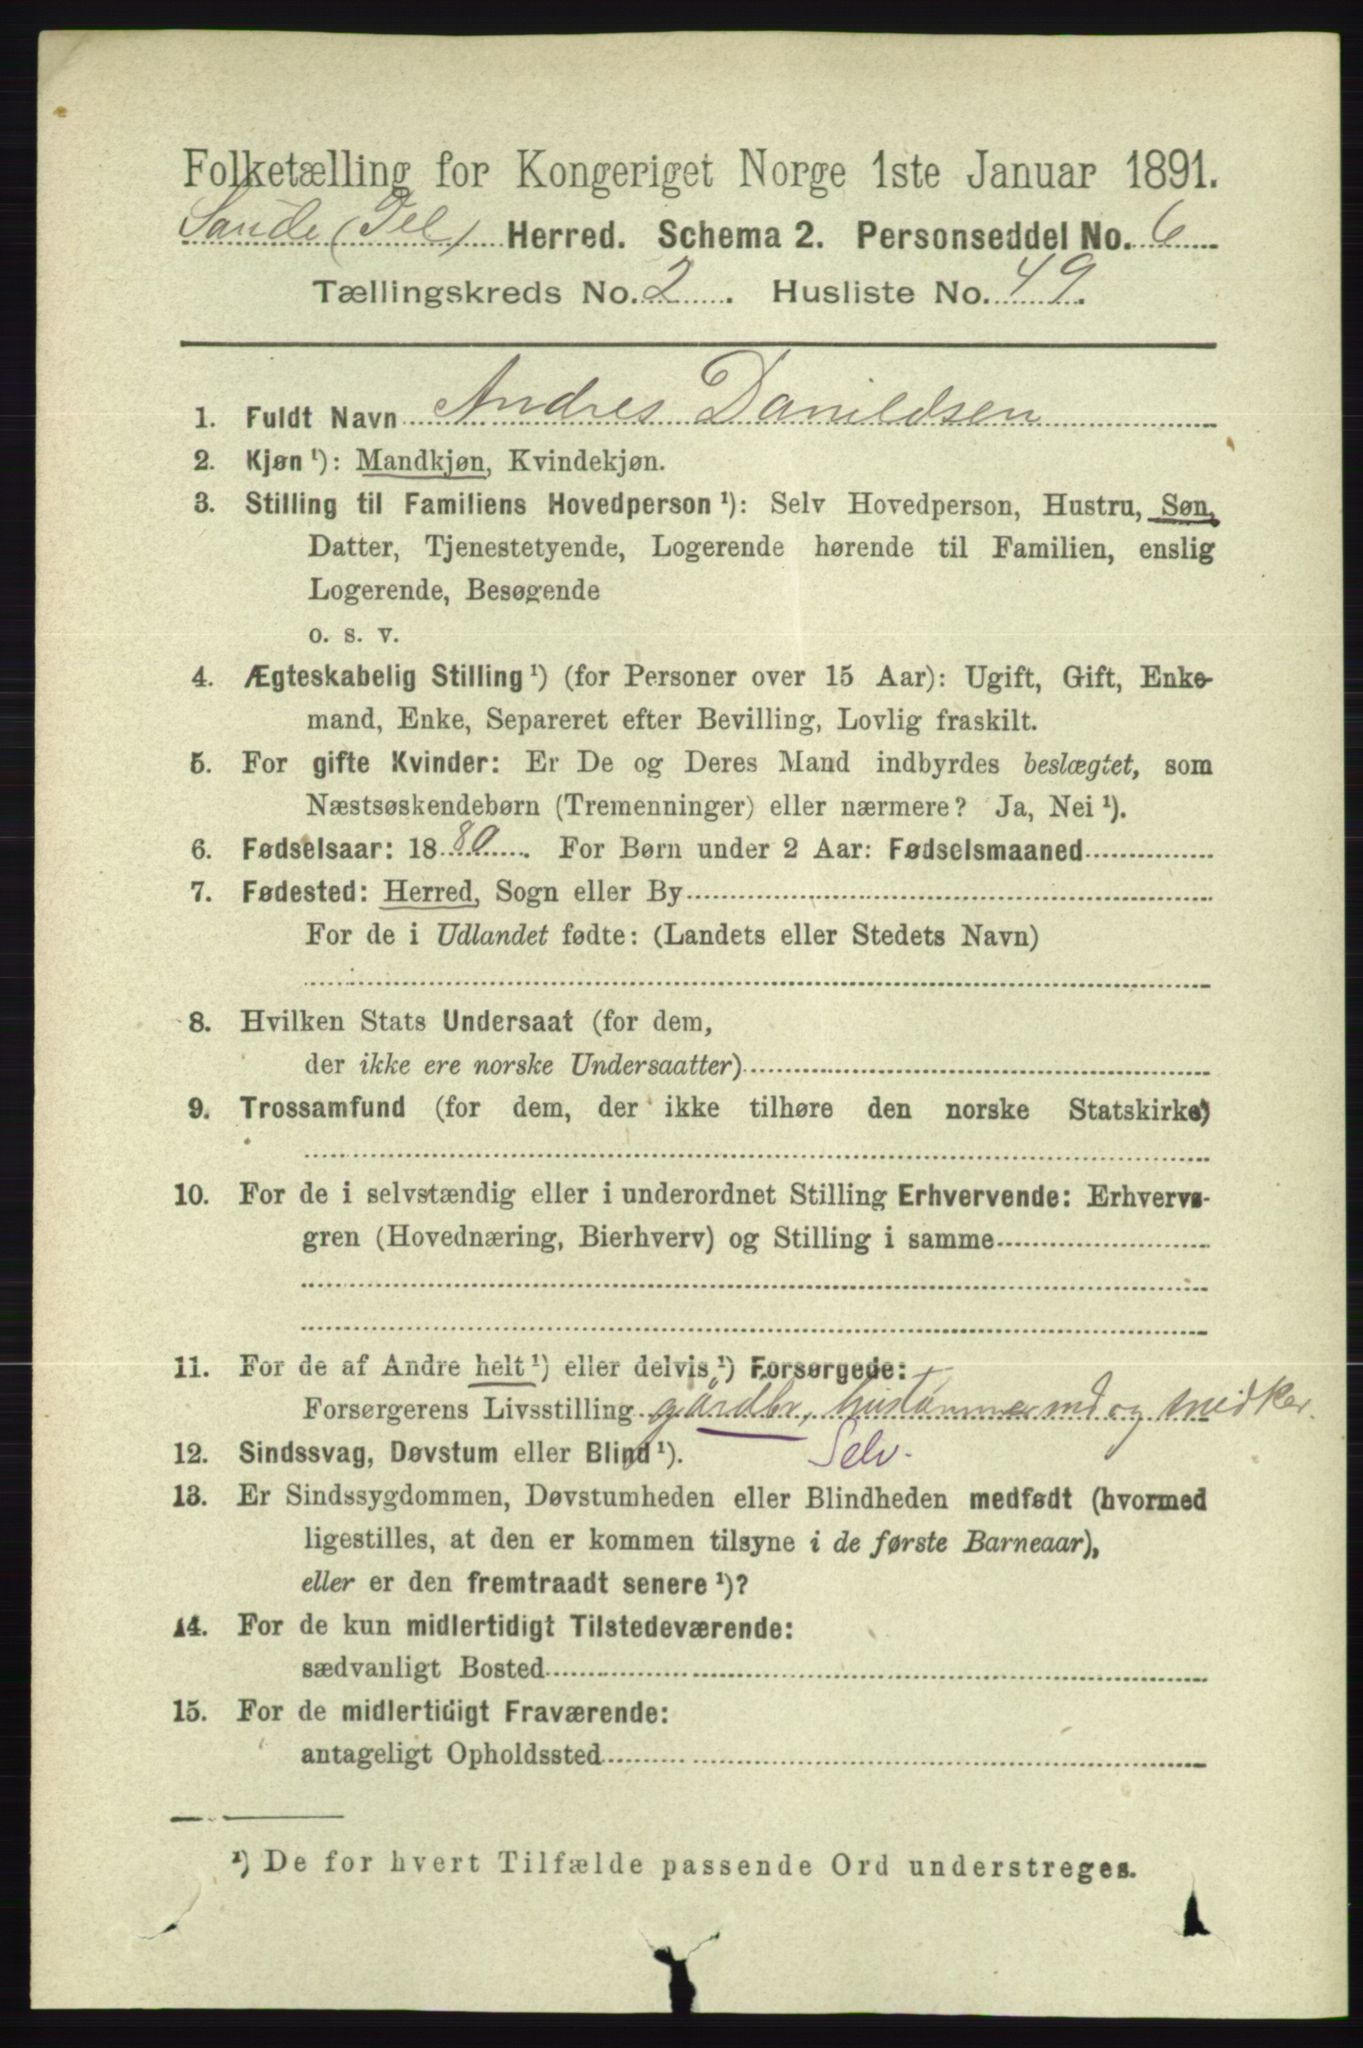 Folketælling for Kongeriget Norge 1ste Januar 1891.
Saude (Tel) Herred. Schema 2. Personseddel No. 6
Tællingskreds No. 2. Husliste No. 49.
1. Fuldt Navn Andres Danildsen
2. Kjøn ¹): Mandkjøn, Kvindekjøn.
3. Stilling til Familiens Hovedperson ¹): Selv Hovedperson, Hustru, Søn,
Datter, Tjenestetyende, Logerende hørende til Familien, enslig
Logerende, Besøgende
o. s. v.
4. Ægteskabelig Stilling ¹) (for Personer over 15 Aar): Ugift, Gift, Enke-
mand, Enke, Separeret efter Bevilling, Lovlig fraskilt.
5. For gifte Kvinder: Er De og Deres Mand indbyrdes beslægtet, som
Næstsøskendebørn (Tremenninger) eller nærmere? Ja, Nei ¹).
6. Fødselsaar: 1880. For Børn under 2 Aar: Fødselsmaaned
7. Fødested: Herred, Sogn eller By
For de i Udlandet fødte: (Landets eller Stedets Navn)
8. Hvilken Stats Undersaat (for dem,
der ikke ere norske Undersaatter)
9. Trossamfund (for dem, der ikke tilhøre den norske Statskirke)
10. For de i selvstændig eller i underordnet Stilling Erhvervende: Erhvervs-
gren (Hovednæring, Bierhverv) og Stilling i samme
11. For de af Andre helt ¹) eller delvis ¹) Forsørgede:
Forsørgerens Livsstilling gårdbr, hustømmermd og snidker.
12. Sindssvag, Døvstum eller Blind ¹). Selv.
13. Er Sindssygdommen, Døvstumheden eller Blindheden medfødt (hvormed
ligestilles, at den er kommen tilsyne i de første Barneaar),
eller er den fremtraadt senere ¹)?
14. For de kun midlertidigt Tilstedeværende:
sædvanligt Bosted
15. For de midlertidigt Fraværende:
antageligt Opholdssted
¹) De for hvert Tilfælde passende Ord understreges.